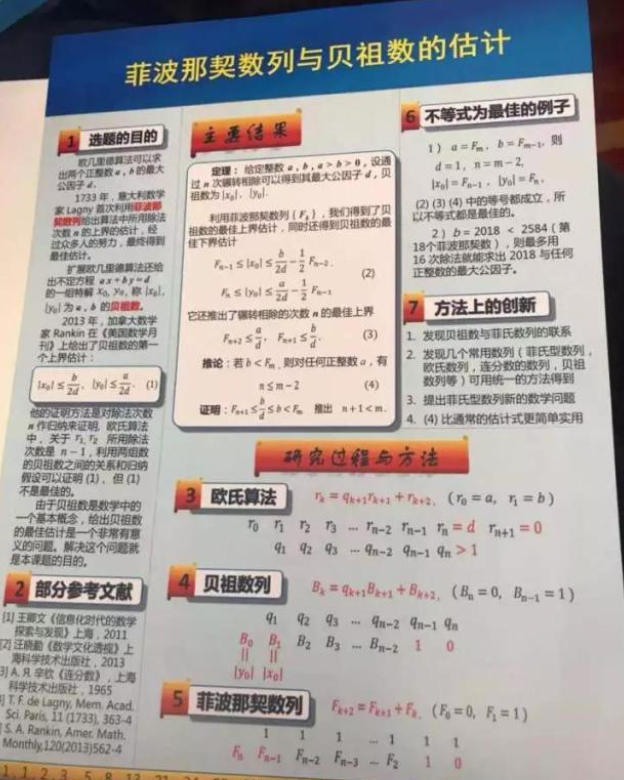 菲波那契数列与贝祖数的估计
1 选题的目的
欧几里德算法可以求
出两个正整数 a, b 的最大
公因子 d.
1733 年，意大利数学
家 Lagny 首次利用菲波那
契数列给出算法中所用除法
次数 n 的上界的估计，经
过众多人的努力，最终得到
最佳估计。
扩展欧几里德算法还给
出不定方程 ax+by=d
的一组特解 x₀, y₀, 称 |x₀|,
|y₀| 为 a, b 的贝祖数。
2013 年，加拿大数学
家 Rankin 在《美国数学月
刊》上给出了贝祖数的第一
个上界估计：
|x₀| ≤ b/2d, |y₀| ≤ a/2d. (1)
他的证明方法是对除法次数
n 作归纳来证明, 欧氏算法
中，关于 r₁, r₂ 所用除法
次数是 n−1，利用两组数
的贝祖数之间的关系和归纳
假设可以证明 (1)，但 (1)
不是最佳的。
由于贝祖数是数学中的
一个基本概念，给出贝祖数
的最佳估计是一个非常有意
义的问题。解决这个问题就
是本课题的目的。
2 部分参考文献
[1] 王卿文《信息化时代的数学
探索与发现》上海，2011
[2] 汪晓勤《数学文化透视》上
海科学技术出版社，2013
3] А. Я. 辛钦《连分数》，上海
科学技术出版社，1965
] T. F. de Lagny, Mem. Acad.
Sci. Paris, 11 (1733), 363-4
] S. A. Rankin, Amer. Math.
Monthly,120(2013)562-4
主要结果
定理：给定整数 a, b, a > b > 0, 设通
过 n 次辗转相除可以得到其最大公因子 d，贝
祖数为 |x₀|, |y₀|.
利用菲波那契数列 {Fₖ}，我们得到了贝
祖数的最佳上界估计，同时还得到贝祖数的最
佳下界估计
Fₙ₋₁ ≤ |x₀| ≤ b/2d − 1/2 Fₙ₋₂.
(2)
Fₙ ≤ |y₀| ≤ a/2d − 1/2 Fₙ₋₁
它还推出了辗转相除的次数 n 的最佳上界
Fₙ₊₂ ≤ a/d, Fₙ₊₁ ≤ b/d. (3)
推论：若 b < Fₘ, 则对任何正整数 a，有
n ≤ m − 2 (4)
证明：Fₙ₊₁ ≤ b/d ≤ b < Fₘ 推出 n+1 < m.
6 不等式为最佳的例子
1) a = Fₘ, b = Fₘ₋₁, 则
d = 1, n = m − 2,
|x₀| = Fₙ₋₁, |y₀| = Fₙ.
(2) (3) (4) 中的等号都成立，所
以不等式都是最佳的。
2) b = 2018 < 2584 (第
18个菲波那契数)，则最多用
16 次除法就能求出 2018 与任何
正整数的最大公因子。
7 方法上的创新
1. 发现贝祖数与菲氏数列的联系
2. 发现几个常用数列（菲氏型数列，
欧氏数列，连分数的数列，贝祖
数列等）可用统一的方法得到
3. 提出菲氏型数列新的数学问题
4. (4) 比通常的估计式更简单实用
研究过程与方法
3 欧氏算法 rₖ = qₖ₊₁rₖ₊₁ + rₖ₊₂, (r₀ = a, r₁ = b)
r₀ r₁ r₂ r₃ … rₙ₋₂ rₙ₋₁ rₙ = d rₙ₊₁ = 0
q₁ q₂ q₃ … qₙ₋₂ qₙ₋₁ qₙ > 1
4 贝祖数列 Bₖ = qₖ₊₁Bₖ₊₁ + Bₖ₊₂, (Bₙ = 0, Bₙ₋₁ = 1)
q₁ q₂ q₃ … qₙ₋₂ qₙ₋₁ qₙ
B₀ B₁ B₂ B₃ … Bₙ₋₂ 1 0
|| ||
|y₀| |x₀|
5 菲波那契数列 Fₖ₊₂ = Fₖ₊₁ + Fₖ, (F₀ = 0, F₁ = 1)
1 1 1 … 1 1 1
Fₙ Fₙ₋₁ Fₙ₋₂ Fₙ₋₃ … F₂ 1 0
1, 1, 2, 3, 5, 8, 13, 21, 34